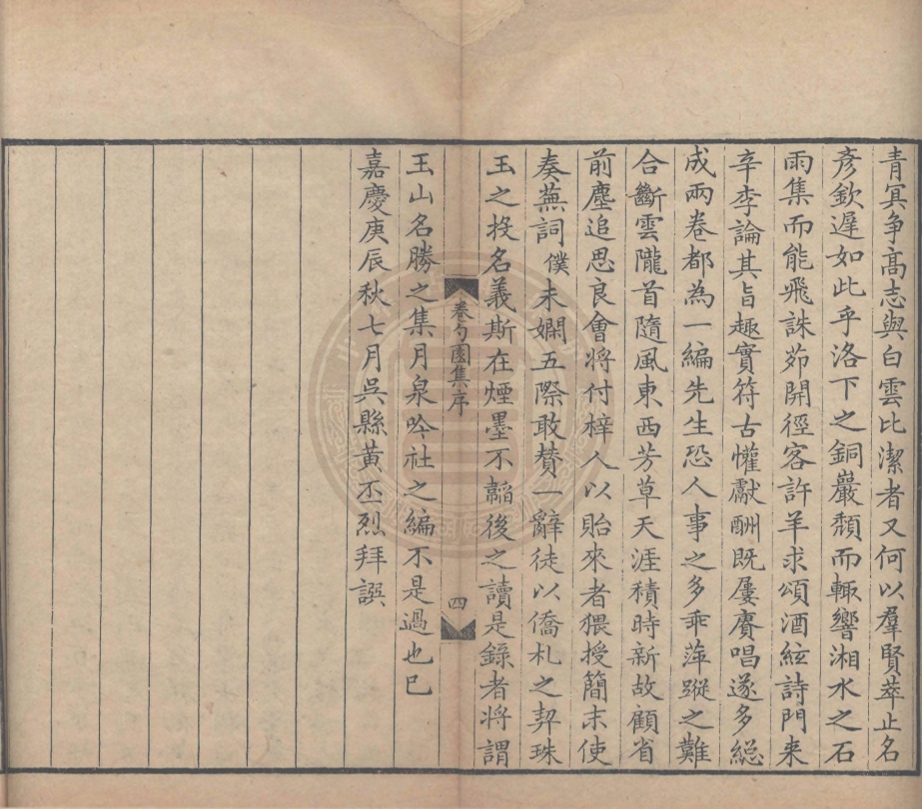 青冥争高志與白雲比潔者又何以羣賢萃止名
彥欽遲如此乎洛下之銅巖頹而輙響湘水之石
雨集而能飛誅茆開徑客許羊求頌酒絃詩門来
辛李論其旨趣實符古懽獻酬既屢賡唱遂多緫
成兩卷都為一編先生恐人事之多乖萍蹤之難
合斷雲隴首隨風東西芳草天涯積時新故顧省
前塵追思良會將付梓人以貽來者猥授簡末使
奏蕪詞僕未嫻五際敢賛一辭徒以僑札之契珠
玉之投名義斯在煙墨不韜後之讀是錄者將謂
卷勺園集序
四
玉山名勝之集月泉吟社之編不是過也巳
嘉慶庚辰秋七月吳縣黃丕烈拜譔